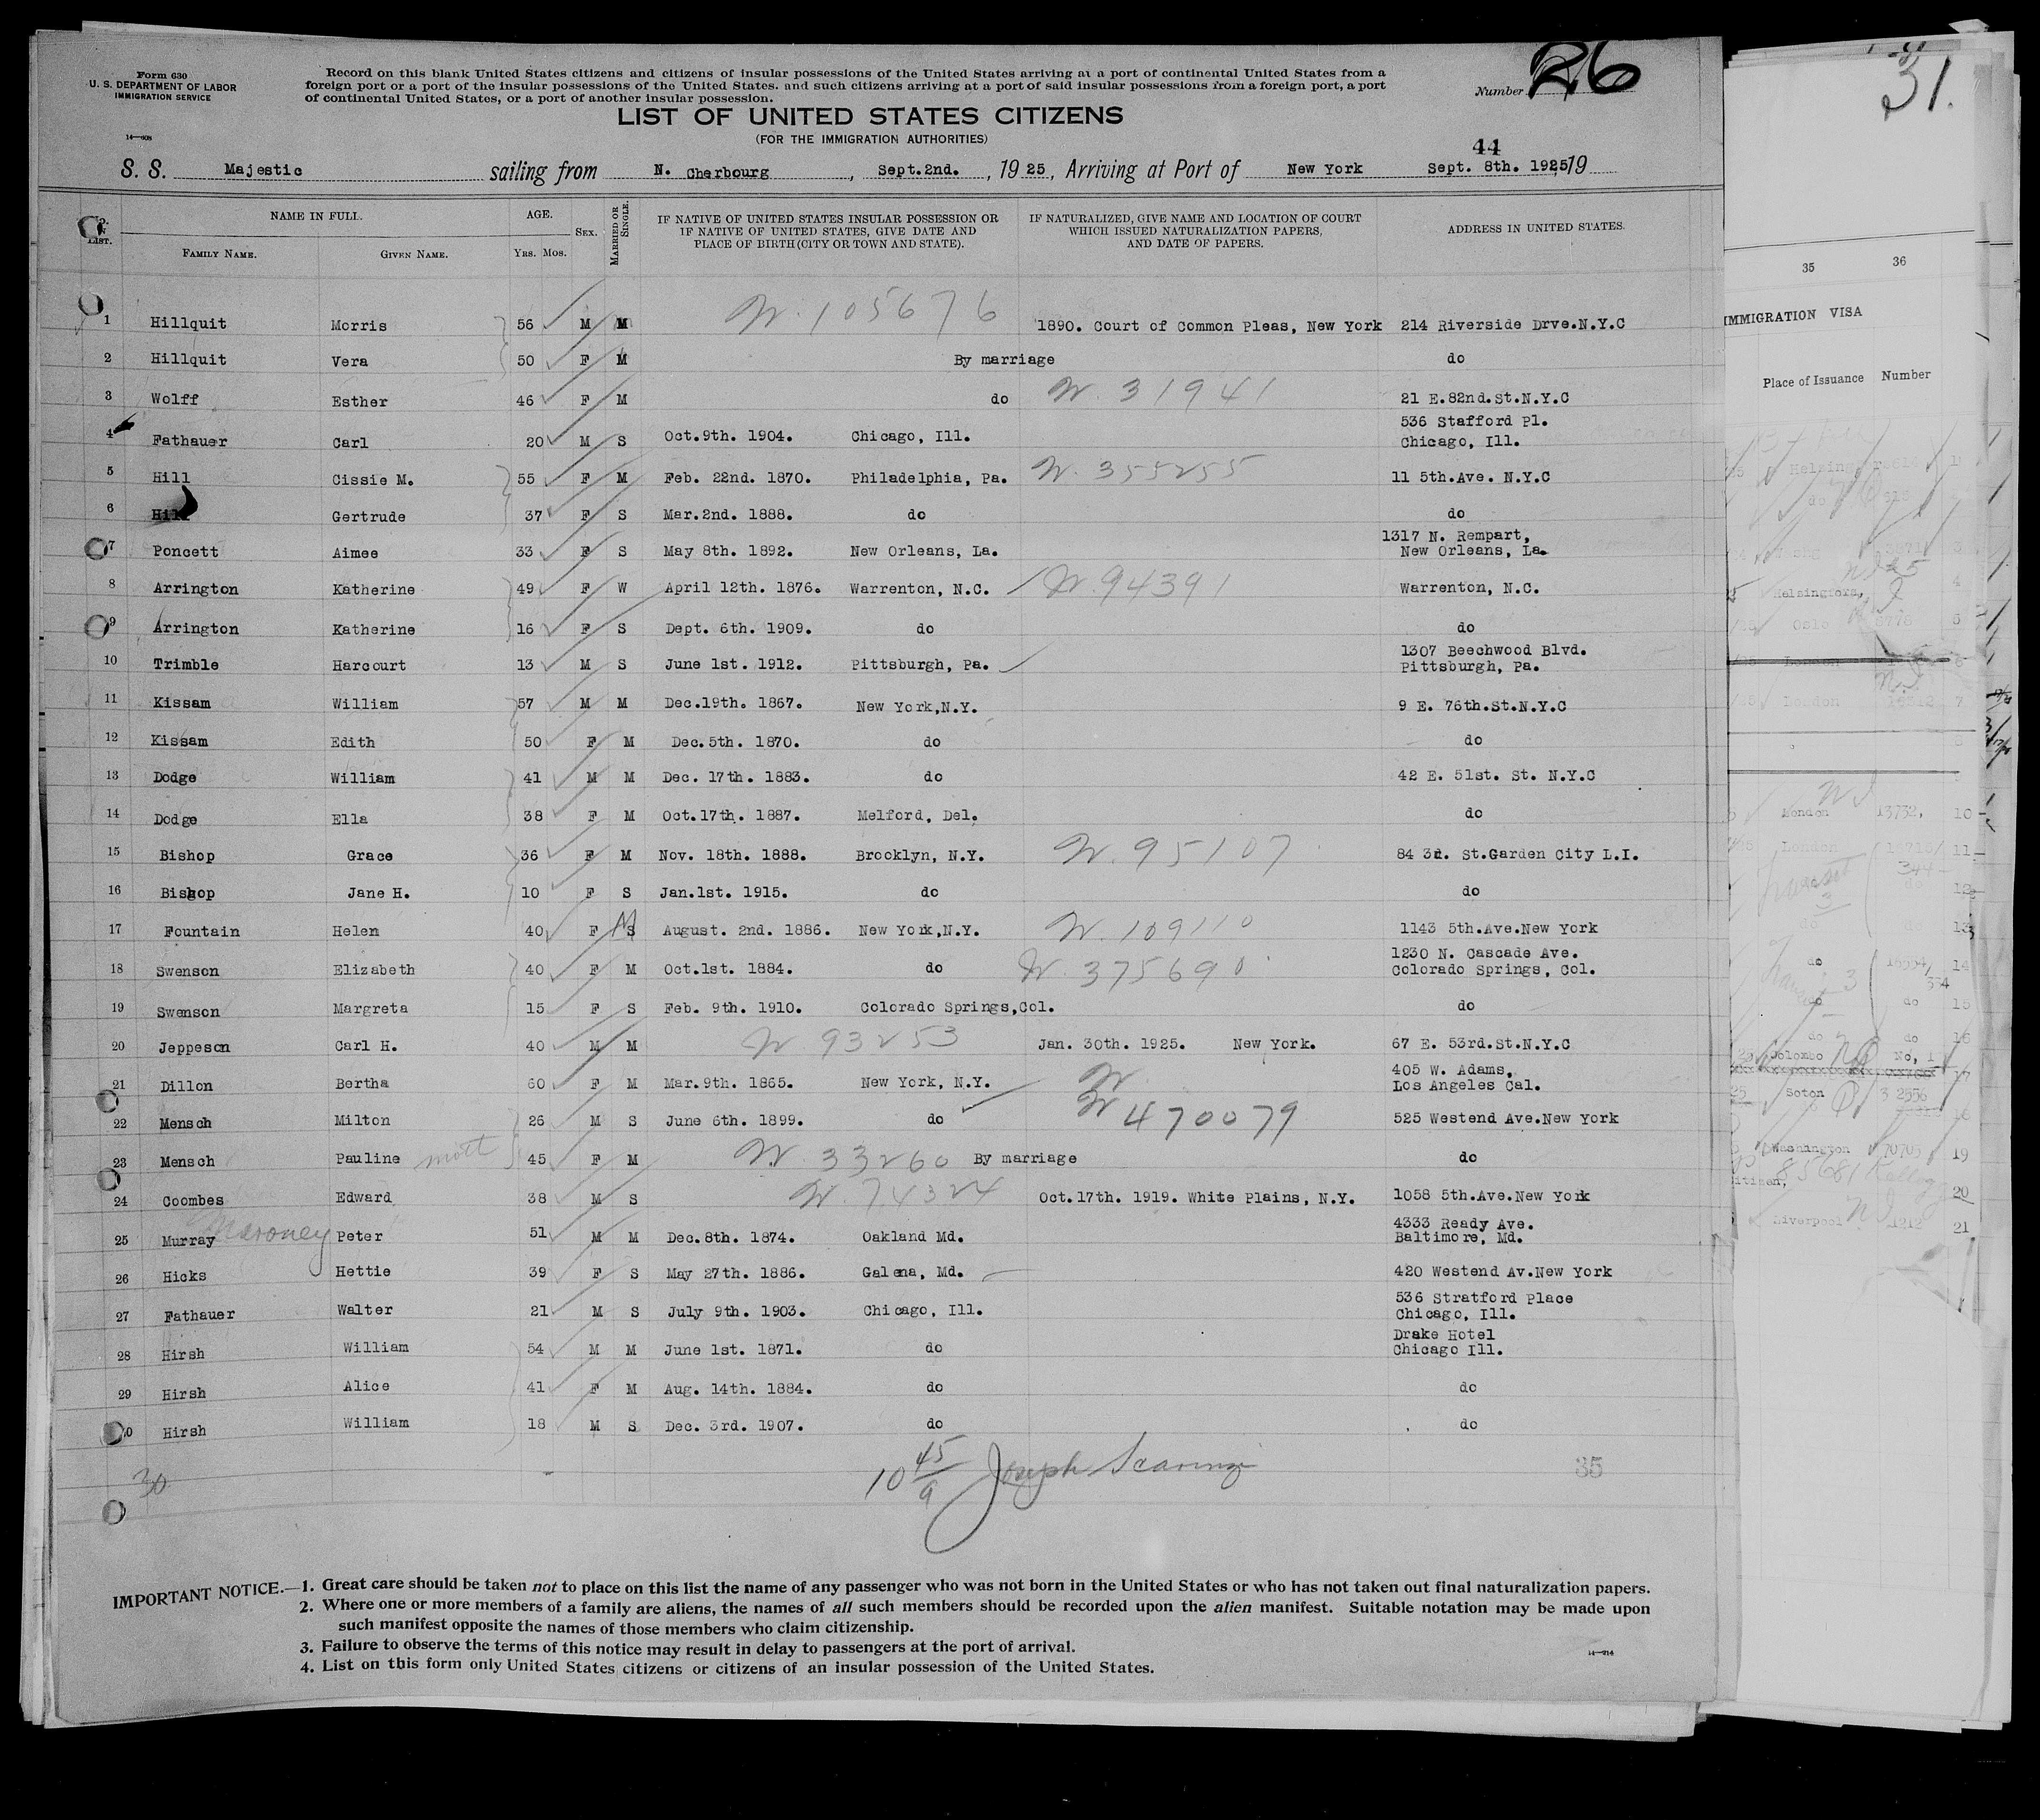 Form 630
U. S. DEPARTMENT OF LABOR
IMMIGRATION SERVICE
14—608
Record on this blank United States citizens and citizens of insular possessions of the United States arriving at a port of continental United States from a
foreign port or a port of the insular possessions of the United States. and such citizens arriving at a port of said insular possessions from a foreign port, a port
of continental United States, or a port of another insular possession.
Number 26
LIST OF UNITED STATES CITIZENS
(FOR THE IMMIGRATION AUTHORITIES)
44
S. S. Majestic sailing from N. Cherbourg, Sept.2nd., 1925, Arriving at Port of New York Sept. 8th. 1925, 19
LIST. NAME IN FULL. AGE. SEX. MARRIED OR SINGLE. IF NATIVE OF UNITED STATES INSULAR POSSESSION OR IF NATIVE OF UNITED STATES, GIVE DATE AND PLACE OF BIRTH (CITY OR TOWN AND STATE). IF NATURALIZED, GIVE NAME AND LOCATION OF COURT WHICH ISSUED NATURALIZATION PAPERS, AND DATE OF PAPERS. ADDRESS IN UNITED STATES.
FAMILY NAME. GIVEN NAME. YRS. MOS.
1 Hillquit Morris 56 M M W. 105676 1890. Court of Common Pleas, New York 214 Riverside Drve.N.Y.C
2 Hillquit Vera 50 F M By marriage do
3 Wolff Esther 46 F M do W. 31941 21 E.82nd.St.N.Y.C
4 Fathauer Carl 20 M S Oct.9th. 1904. Chicago, Ill. 536 Stafford Pl. Chicago, Ill.
5 Hill Cissie M. 55 F M Feb. 22nd. 1870. Philadelphia, Pa. W. 355255 11 5th.Ave. N.Y.C
6 Hill Gertrude 37 F S Mar.2nd. 1888. do do
7 Poncett Aimee 33 F S May 8th. 1892. New Orleans, La. 1317 N. Rempart, New Orleans, La.
8 Arrington Katherine 49 F W April 12th. 1876. Warrenton, N.C. W. 94391 Warrenton, N.C.
9 Arrington Katherine 16 F S Dept. 6th. 1909. do do
10 Trimble Harcourt 13 M S June 1st. 1912. Pittsburgh, Pa. 1307 Beechwood Blvd. Pittsburgh, Pa.
11 Kissam William 57 M M Dec.19th. 1867. New York,N.Y. 9 E. 76th.St.N.Y.C
12 Kissam Edith 50 F M Dec.5th. 1870. do do
13 Dodge William 41 M M Dec. 17th. 1883. do 42 E. 51st. St. N.Y.C
14 Dodge Ella 38 F M Oct.17th. 1887. Melford, Del. do
15 Bishop Grace 36 F M Nov. 18th. 1888. Brooklyn, N.Y. W. 95107 84 3d. St.Garden City L.I.
16 Bishop Jane H. 10 F S Jan.1st. 1915. do do
17 Fountain Helen 40 F M S August. 2nd. 1886. New York,N.Y. W. 109110 1143 5th.Ave.New York
18 Swenson Elizabeth 40 F M Oct.1st. 1884. do W. 375690 1230 N. Cascade Ave. Colorado Springs, Col.
19 Swenson Margreta 15 F S Feb. 9th. 1910. Colorado Springs,Col. do
20 Jeppeson Carl H. 40 M M W 93253 Jan. 30th. 1925. New York. 67 E. 53rd.St.N.Y.C
21 Dillon Bertha 60 F M Mar.9th. 1865. New York, N.Y. W 405 W. Adams, Los Angeles Cal.
22 Mensch Milton 26 M S June 6th. 1899. do W 470079 525 Westend Ave.New York
23 Mensch Pauline 45 F M W. 33260 By marriage do
24 Coombes Edward 38 M S W. 74324 Oct.17th. 1919. White Plains, N.Y. 1058 5th.Ave.New York
25 Murray Maroney Peter 51 M M Dec.8th. 1874. Oakland Md. 4333 Ready Ave. Baltimore, Md.
26 Hicks Hettie 39 F S May 27th. 1886. Galena, Md. 420 Westend Av.New York
27 Fathauer Walter 21 M S July 9th. 1903. Chicago, Ill. 536 Stratford Place Chicago, Ill.
28 Hirsh William 54 M M June 1st. 1871. do Drake Hotel Chicago Ill.
29 Hirsh Alice 41 F M Aug. 14th. 1884. do do
30 Hirsh William 18 M S Dec. 3rd. 1907. do do
30 10 45/9 Joseph 35
IMPORTANT NOTICE.—1. Great care should be taken not to place on this list the name of any passenger who was not born in the United States or who has not taken out final naturalization papers.
2. Where one or more members of a family are aliens, the names of all such members should be recorded upon the alien manifest. Suitable notation may be made upon
such manifest opposite the names of those members who claim citizenship.
3. Failure to observe the terms of this notice may result in delay to passengers at the port of arrival.
4. List on this form only United States citizens or citizens of an insular possession of the United States.
14—214
31.
35 36
IMMIGRATION VISA
Place of Issuance Number
do
Helsingfors,
Oslo
London 7
London 13732, 10
London 11
12
13
do 14
do do 15
do do 16
Colombo No, 1
Soton
Washington 70705 19
20
Liverpool 1212 21